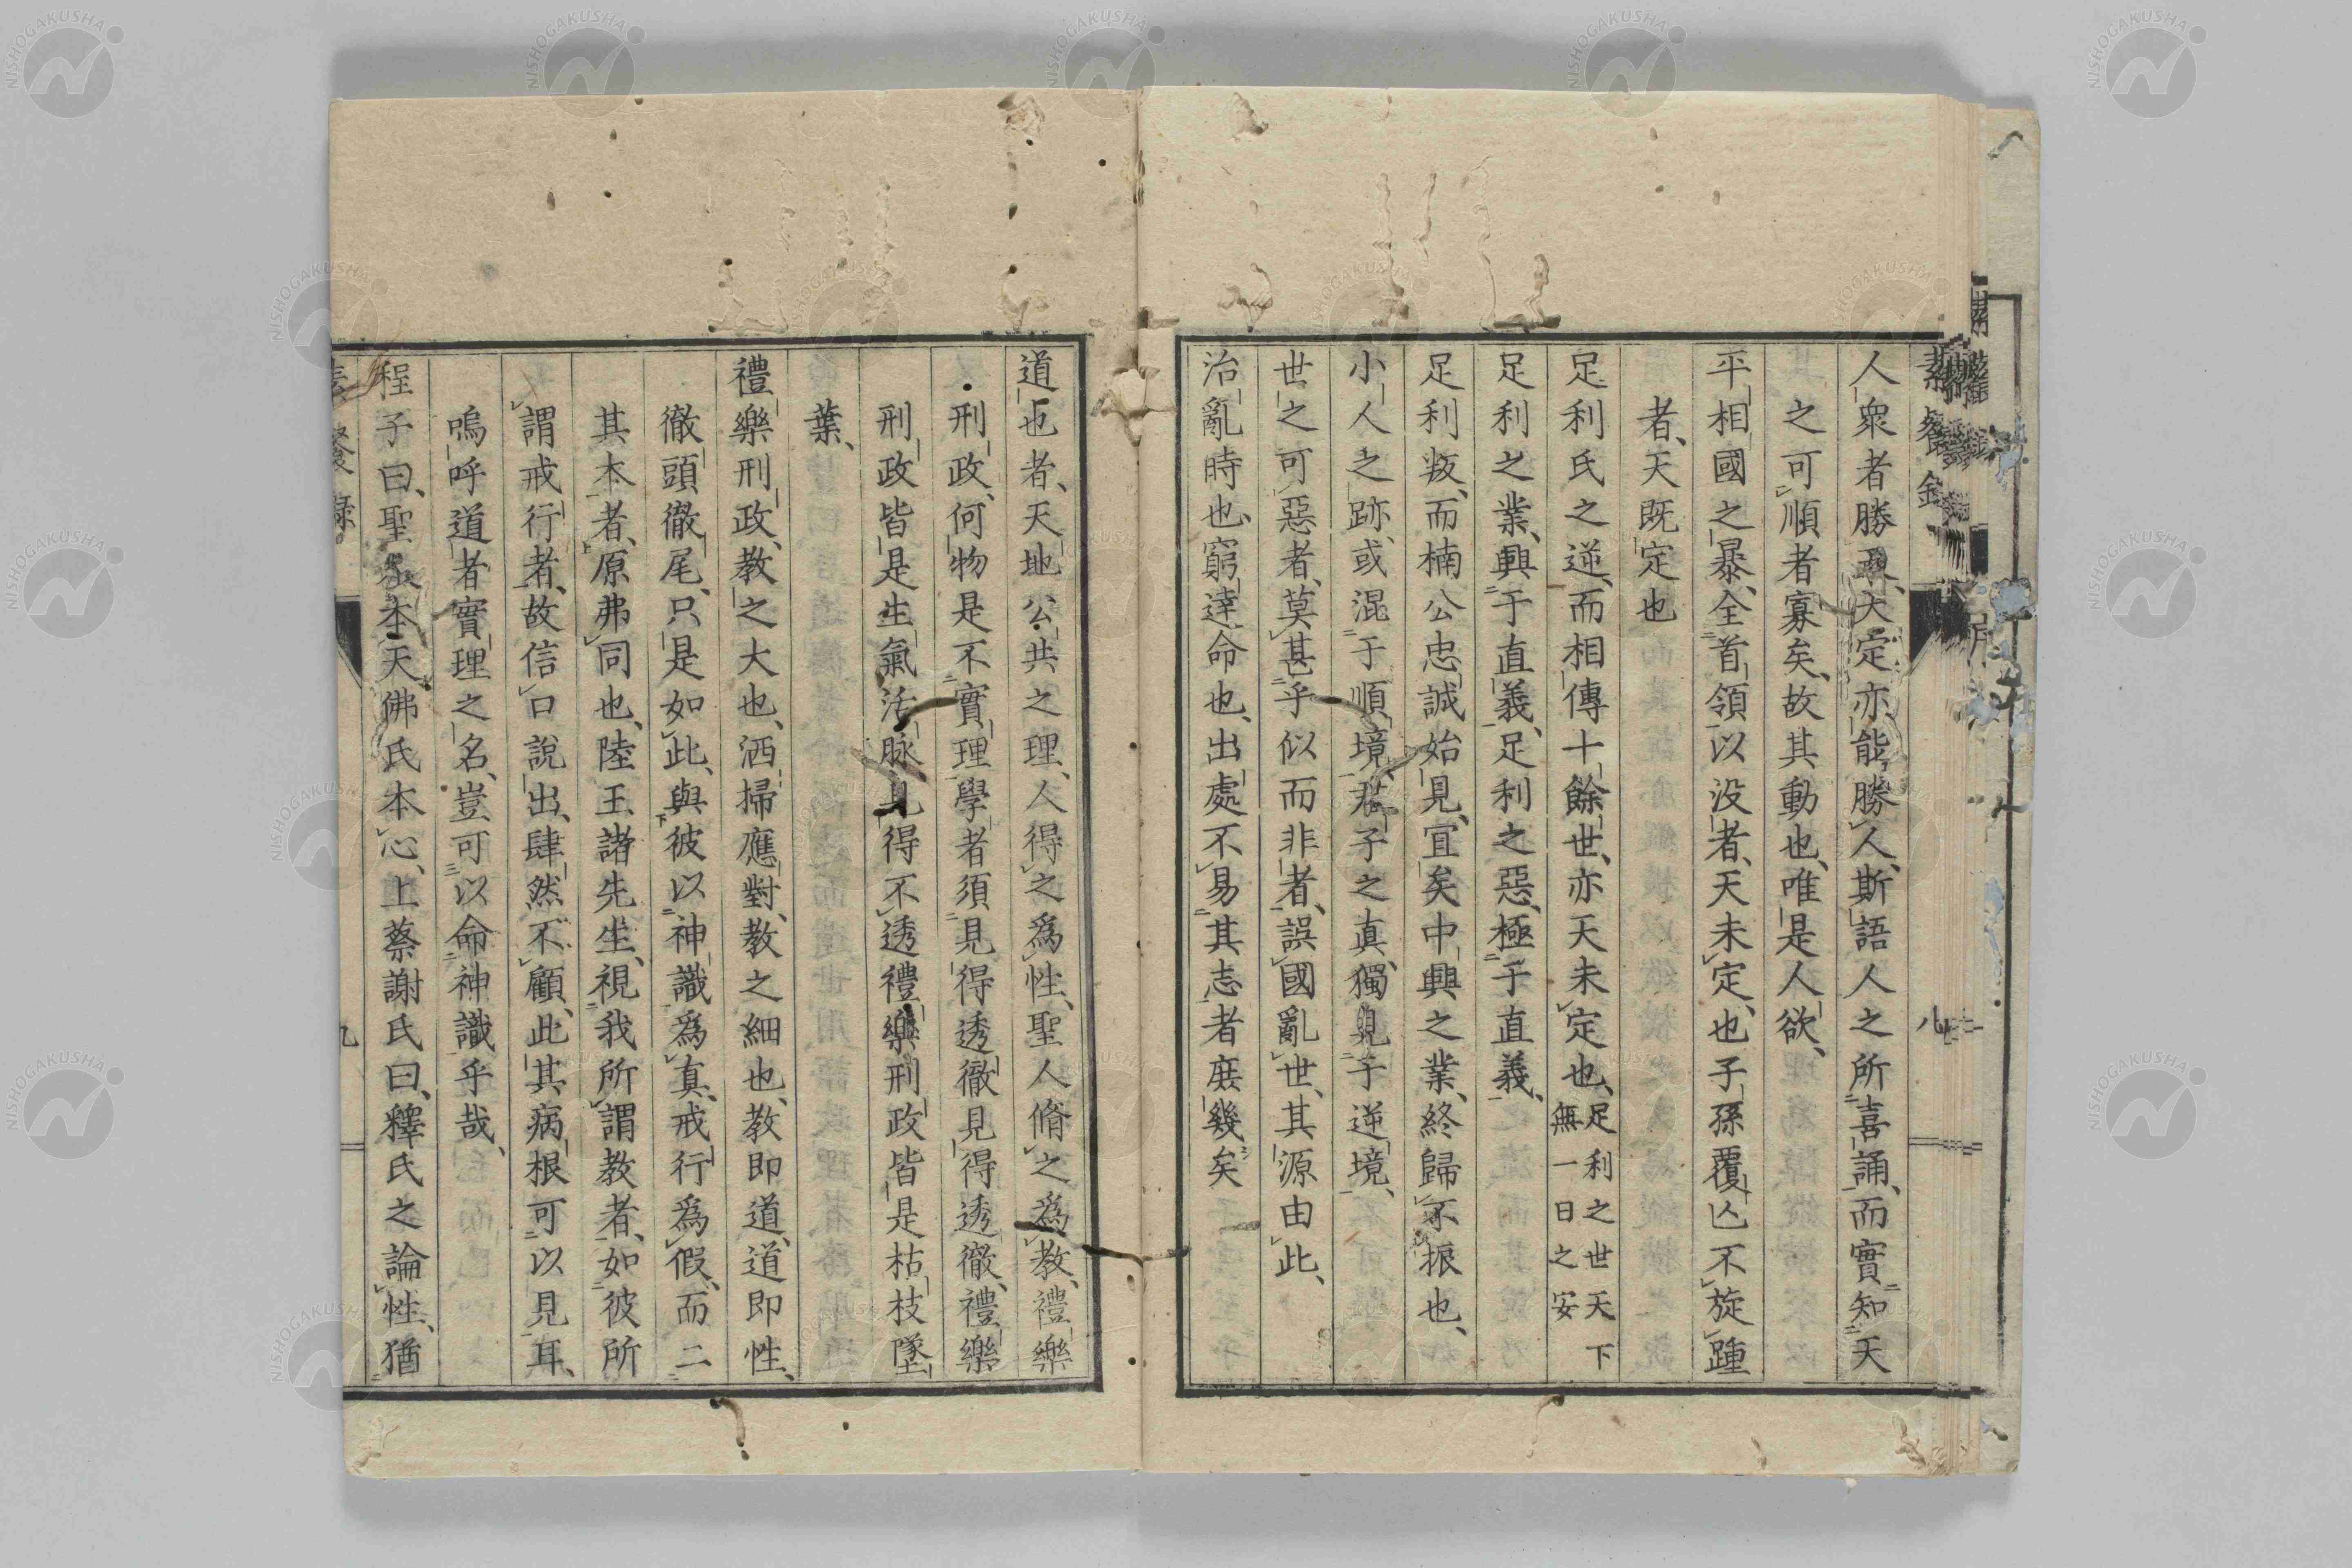 人衆者勝天大定亦能勝人斯語人之所喜誦而實知天
之可順者寡矣故其動也唯是人欲
平相國之暴全首領以没者天未定也子孫覆亾不旋踵
者天既定也
足利氏之逆而相傳十餘世亦天未定也足利之世天下無一日之安
足利之業興于直義足利之惡極于直義
足利叛而楠公忠誠始見宜矣中興之業終歸不振也
小人之跡或混于順境君子之真獨見于逆境
世之可惡者莫甚乎似而非者誤國亂世其源由此
治亂時也窮達命也出處不易其志者庶幾矣
道也者天地公共之理人得之為性聖人脩之為教禮樂
刑政何物是不實理學者須見得透徹見得透徹禮樂
刑政皆是生氣活脉見得不透禮樂刑政皆是枯枝墜
葉
禮樂刑政教之大也洒掃應對教之細也教即道道即性
徹頭徹尾只是如此與彼以神識為真戒行為假而二
其本者原弗同也陸王諸先生視我所謂教者如彼所
謂戒行者故信口說出肆然不顧此其病根可以見耳
嗚呼道者實理之名豈可以命神識乎哉
程子曰聖人本天佛氏本心上蔡謝氏曰釋氏之論性猶
九
NISHOGAKUSHA